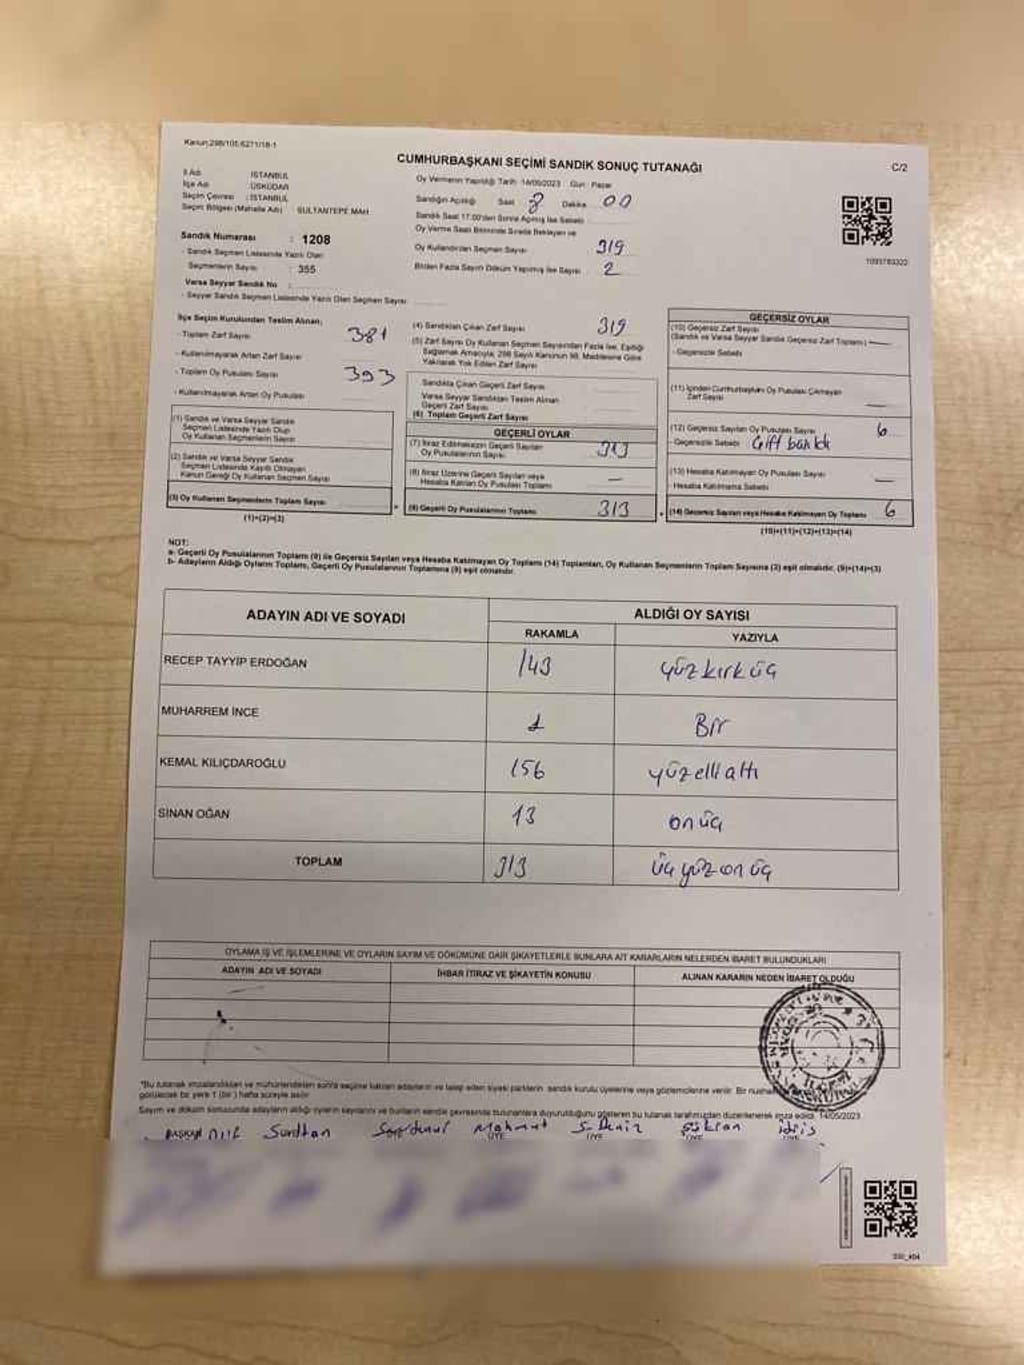 Kanun:298/105;6271/18-1
CUMHURBAŞKANI SEÇİMİ SANDIK SONUÇ TUTANAĞI
C/2
İl Adı : İSTANBUL
İlçe Adı : ÜSKÜDAR
Seçim Çevresi : İSTANBUL
Seçim Bölgesi (Mahalle Adı) : SULTANTEPE MAH
Sandık Numarası : 1208
- Sandık Seçmen Listesinde Yazılı Olan
Seçmenlerin Sayısı : 355
Varsa Seyyar Sandık No :
- Seyyar Sandık Seçmen Listesinde Yazılı Olan Seçmen Sayısı
Oy Vermenin Yapıldığı Tarih: 14/05/2023 Gün : Pazar
Sandığın Açıldığı Saat 8 Dakika 00
Sandık Saat 17:00'den Sonra Açılmış İse Sebebi
Oy Verme Saati Bitiminde Sırada Bekleyen ve
Oy Kullandırılan Seçmen Sayısı 319
Birden Fazla Sayım Döküm Yapılmış İse Sayısı 2
1093783322
İlçe Seçim Kurulundan Teslim Alınan;
- Toplam Zarf Sayısı 381
- Kullanılmayarak Artan Zarf Sayısı
- Toplam Oy Pusulası Sayısı 393
- Kullanılmayarak Artan Oy Pusulası
(1) Sandık ve Varsa Seyyar Sandık
Seçmen Listesinde Yazılı Olup
Oy Kullanan Seçmenlerin Sayısı
(2) Sandık ve Varsa Seyyar Sandık
Seçmen Listesinde Kayıtlı Olmayan
Kanun Gereği Oy Kullanan Seçmen Sayısı
(3) Oy Kullanan Seçmenlerin Toplam Sayısı
(1)+(2)=(3)
(4) Sandıktan Çıkan Zarf Sayısı 319
(5) Zarf Sayısı Oy Kullanan Seçmen Sayısından Fazla İse, Eşitliği
Sağlamak Amacıyla, 298 Sayılı Kanunun 98. Maddesine Göre
Yakılarak Yok Edilen Zarf Sayısı
Sandıkta Çıkan Geçerli Zarf Sayısı
Varsa Seyyar Sandıktan Teslim Alınan
Geçerli Zarf Sayısı
(6) Toplam Geçerli Zarf Sayısı
GEÇERLİ OYLAR
(7) İtiraz Edilmeksizin Geçerli Sayılan
Oy Pusulalarının Sayısı 313
(8) İtiraz Üzerine Geçerli Sayılan veya
Hesaba Katılan Oy Pusulası Toplamı —
(9) Geçerli Oy Pusulalarının Toplamı 313
GEÇERSİZ OYLAR
(10) Geçersiz Zarf Sayısı
(Sandık ve Varsa Seyyar Sandık Geçersiz Zarf Toplamı) —
- Geçersizlik Sebebi
(11) İçinden Cumhurbaşkanı Oy Pusulası Çıkmayan
Zarf Sayısı —
(12) Geçersiz Sayılan Oy Pusulası Sayısı 6
- Geçersizlik Sebebi Çift baskı
(13) Hesaba Katılmayan Oy Pusulası Sayısı —
- Hesaba Katılmama Sebebi
(14) Geçersiz Sayılan veya Hesaba Katılmayan Oy Toplamı 6
(10)+(11)+(12)+(13)=(14)
NOT:
a- Geçerli Oy Pusulalarının Toplamı (9) ile Geçersiz Sayılan veya Hesaba Katılmayan Oy Toplamı (14) Toplamları, Oy Kullanan Seçmenlerin Toplam Sayısına (3) eşit olmalıdır. (9)+(14)=(3)
b- Adayların Aldığı Oyların Toplamı, Geçerli Oy Pusulalarının Toplamına (9) eşit olmalıdır.
ADAYIN ADI VE SOYADI ALDIĞI OY SAYISI
RAKAMLA YAZIYLA
RECEP TAYYİP ERDOĞAN 143 yüzkırküç
MUHARREM İNCE 1 Bir
KEMAL KILIÇDAROĞLU 156 yüzellialtı
SİNAN OĞAN 13 onüç
TOPLAM 313 üçyüzonüç
OYLAMA İŞ VE İŞLEMLERİNE VE OYLARIN SAYIM VE DÖKÜMÜNE DAİR ŞİKAYETLERLE BUNLARA AİT KARARLARIN NELERDEN İBARET BULUNDUKLARI
ADAYIN ADI VE SOYADI İHBAR İTİRAZ VE ŞİKAYETİN KONUSU ALINAN KARARIN NEDEN İBARET OLDUĞU
"Bu tutanak imzalandıktan ve mühürlendikten sonra seçime katılan adayların ve talep eden siyasi partilerin sandık kurulu üyelerine veya gözlemcilerine verilir. Bir nüshası
görülecek bir yere 1 (bir) hafta süreyle asılır.
Sayım ve döküm sonucunda adayların aldığı oyların sayılarını ve bunların sandık çevresinde bulunanlara duyurulduğunu gösteren bu tutanak tarafımızdan düzenlenerek imza edildi. 14/05/2023
BAŞKAN Mahmut S. Deniz Şükran İdris
ÜYE ÜYE ÜYE ÜYE